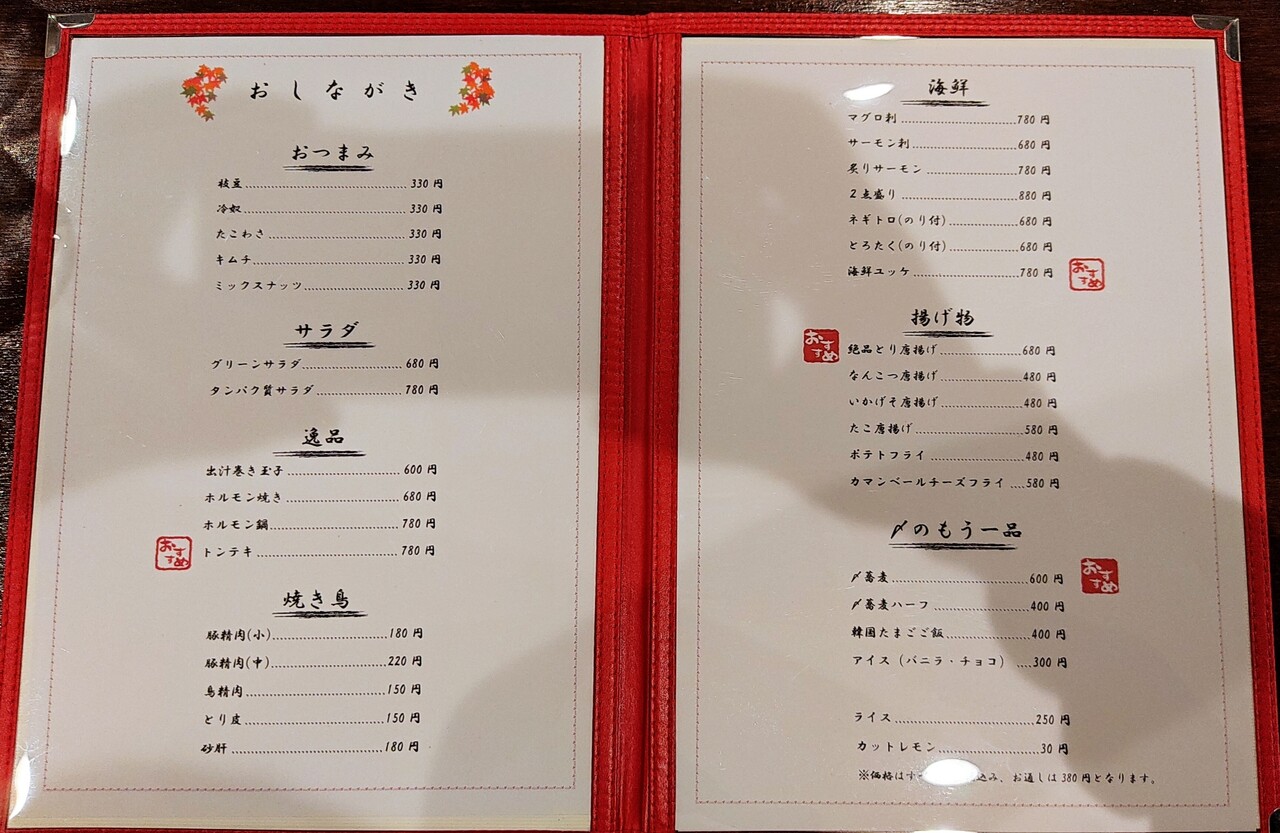 おしながき
おつまみ
枝豆 330 円
冷奴 330 円
たこわさ 330 円
キムチ 330 円
ミックスナッツ 330 円
サラダ
グリーンサラダ 680 円
タンパク質サラダ 780 円
逸品
出汁巻き玉子 600 円
ホルモン焼き 680 円
ホルモン鍋 780 円
おすすめ
トンテキ 780 円
焼き鳥
豚精肉(小) 180 円
豚精肉(中) 220 円
鳥精肉 150 円
とり皮 150 円
砂肝 180 円
海鮮
マグロ刺 780 円
サーモン刺 680 円
炙りサーモン 780 円
2点盛り 880 円
ネギトロ(のり付) 680 円
とろたく(のり付) 680 円
海鮮ユッケ 780 円
おすすめ
揚げ物
おすすめ
絶品とり唐揚げ 680 円
なんこつ唐揚げ 480 円
いかげそ唐揚げ 480 円
たこ唐揚げ 580 円
ポテトフライ 480 円
カマンベールチーズフライ 580 円
〆のもう一品
〆蕎麦 600 円
おすすめ
〆蕎麦ハーフ 400 円
韓国たまごご飯 400 円
アイス（バニラ・チョコ） 300 円
ライス 250 円
カットレモン 30 円
※価格はす 込み、お通しは380円となります。